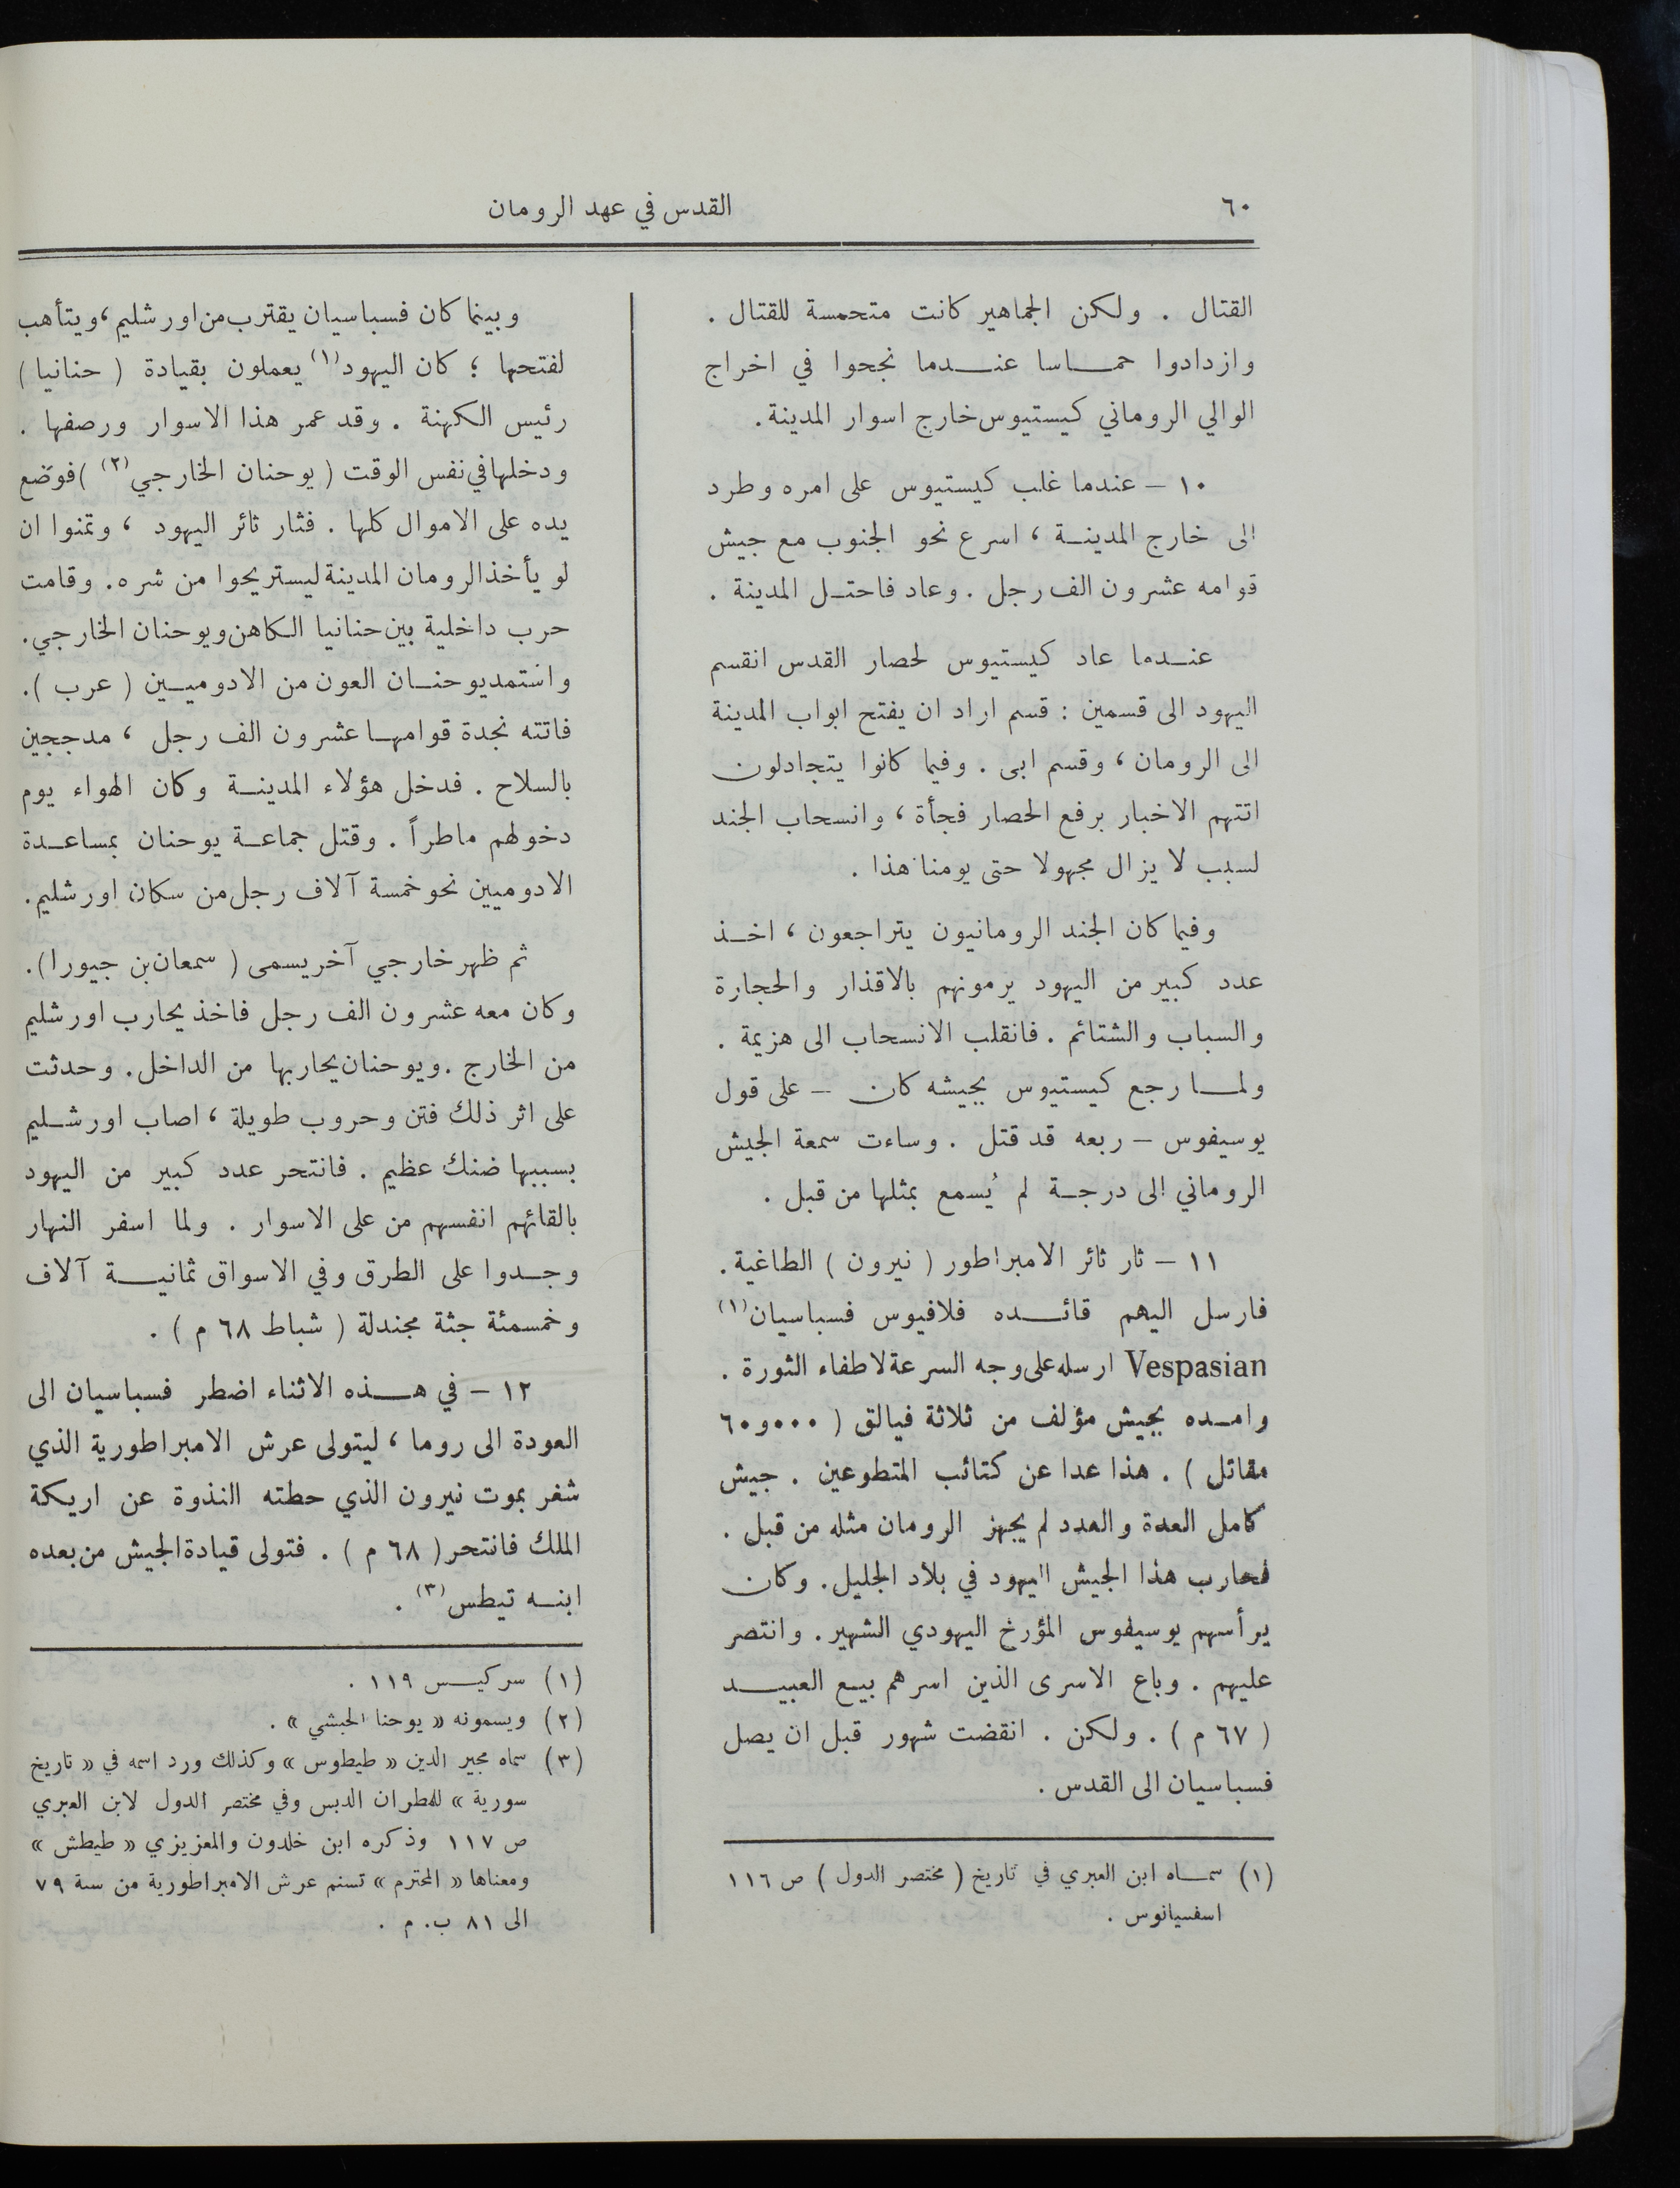 ٦٠
القدس في عهد الرومان
القتال . ولكن الجماهير كانت متحمسة للقتال .
وازدادوا حماسا عندما نجحوا في اخراج
الوالي الروماني كيستيوس خارج اسوار المدينة .
١٠ – عندما غلب كيستيوس على امره وطرد
الى خارج المدينة ، اسرع نحو الجنوب مع جيش
قوامه عشرون الف رجل . وعاد فاحتل المدينة .
عندما عاد كيستيوس لحصار القدس انقسم
اليهود الى قسمين : قسم اراد ان يفتح ابواب المدينة
الى الرومان ، وقسم ابى . وفيما كانوا يتجادلون
اتتهم الاخبار برفع الحصار فجأة ، وانسحاب الجند
لسبب لا يزال مجهولا حتى يومنا هذا .
وفيما كان الجند الرومانيون يتراجعون ، اخذ
عدد كبير من اليهود يرمونهم بالاقذار والحجارة
والسباب والشتائم . فانقلب الانسحاب الى هزيمة .
ولما رجع كيستيوس بجيشه كان – على قول
يوسيفوس – ربعه قد قتل . وساءت سمعة الجيش
الروماني الى درجة لم يُسمع بمثلها من قبل .
١١ – ثار ثائر الامبراطور ( نيرون ) الطاغية .
فارسل اليهم قائده فلافيوس فسباسيان (١)
Vespasian ارسله على وجه السرعة لاطفاء الثورة .
وامده بجيش مؤلف من ثلاثة فيالق ( ٦٠و٠٠٠
مقاتل ) . هذا عدا عن كتائب المتطوعين . جيش
كامل العدة والعدد لم يجهز الرومان مثله من قبل .
فحارب هذا الجيش اليهود في بلاد الجليل . وكان
يرأسهم يوسيفوس المؤرخ اليهودي الشهير . وانتصر
عليهم . وباع الاسرى الذين اسرهم بيع العبيد
( ٦٧ م ) . ولكن . انقضت شهور قبل ان يصل
فسباسيان الى القدس .
(١) سماه ابن العبري في تاريخ ( مختصر الدول ) ص ١١٦
اسفسيانوس .
وبينما كان فسباسيان يقترب من اورشليم ، ويتأهب
لفتحها ؛ كان اليهود (١) يعملون بقيادة ( حنانيا )
رئيس الكهنة . وقد عمر هذا الاسوار ورصفها .
ودخلها في نفس الوقت ( يوحنان الخارجي (٢) ) فوضع
يده على الاموال كلها . فثار ثائر اليهود ، وتمنوا ان
لو يأخذ الرومان المدينة ليستريحوا من شره . وقامت
حرب داخلية بين حنانيا الكاهن ويوحنان الخارجي .
واستمد يوحنان العون من الادوميين ( عرب ) .
فاتته نجدة قوامها عشرون الف رجل ، مدججين
بالسلاح . فدخل هؤلاء المدينة وكان الهواء يوم
دخولهم ماطراً . وقتل جماعة يوحنان بمساعدة
الادوميين نحو خمسة آلاف رجل من سكان اورشليم .
ثم ظهر خارجي آخر يسمى ( سمعان بن جيورا ) .
وكان معه عشرون الف رجل فاخذ يحارب اورشليم
من الخارج . ويوحنان يحاربها من الداخل . وحدثت
على اثر ذلك فتن وحروب طويلة ، اصاب اورشليم
بسببها ضنك عظيم . فانتحر عدد كبير من اليهود
بالقائهم انفسهم من على الاسوار . ولما اسفر النهار
وجدوا على الطرق وفي الاسواق ثمانية آلاف
وخمسمئة جثة مجندلة ( شباط ٦٨ م ) .
١٢ – في هذه الاثناء اضطر فسباسيان الى
العودة الى روما ، ليتولى عرش الامبراطورية الذي
شغر بموت نيرون الذي حطته الندوة عن اريكة
الملك فانتحر ( ٦٨ م ) . فتولى قيادة الجيش من بعده
ابنه تيطس (٣) .
(١) سركيس ١١٩ .
(٢) ويسمونه « يوحنا الحبشي » .
(٣) سماه مجير الدين « طيطوس » وكذلك ورد اسمه في « تاريخ
سورية » للمطران الدبس وفي مختصر الدول لابن العبري
ص ١١٧ وذكره ابن خلدون والمعزيزي « طيطش »
ومعناها « المحترم » تسنم عرش الامبراطورية من سنة ٧٩
الى ٨١ ب. م .